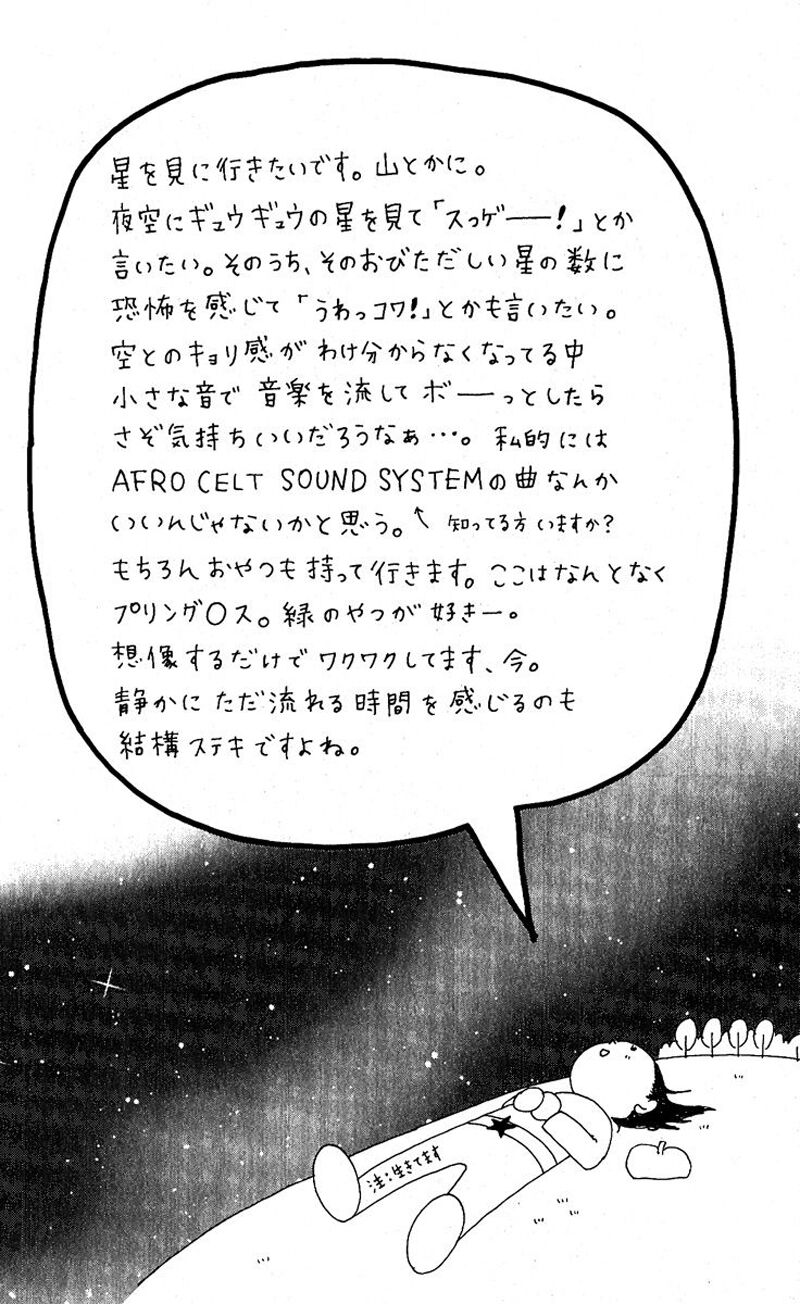 星を見に行きたいです。山とかに。
夜空にギュウギュウの星を見て「スっゲ——！」とか
言いたい。そのうち、そのおびただしい星の数に
恐怖を感じて「うわっコワ！」とかも言いたい。
空とのキョリ感がわけ分からなくなってる中
小さな音で 音楽を流して ボ——っとしたら
さぞ気持ちいいだろうなぁ…。私的には
AFRO CELT SOUND SYSTEMの曲なんか
いいんじゃないかと思う。↑ 知ってる方いますか？
もちろんおやつも持って行きます。ここはなんとなく
プリング〇ス。緑のやつが好きー。
想像するだけでワクワクしてます、今。
静かに ただ流れる時間を感じるのも
結構ステキですよね。
注：生きてます